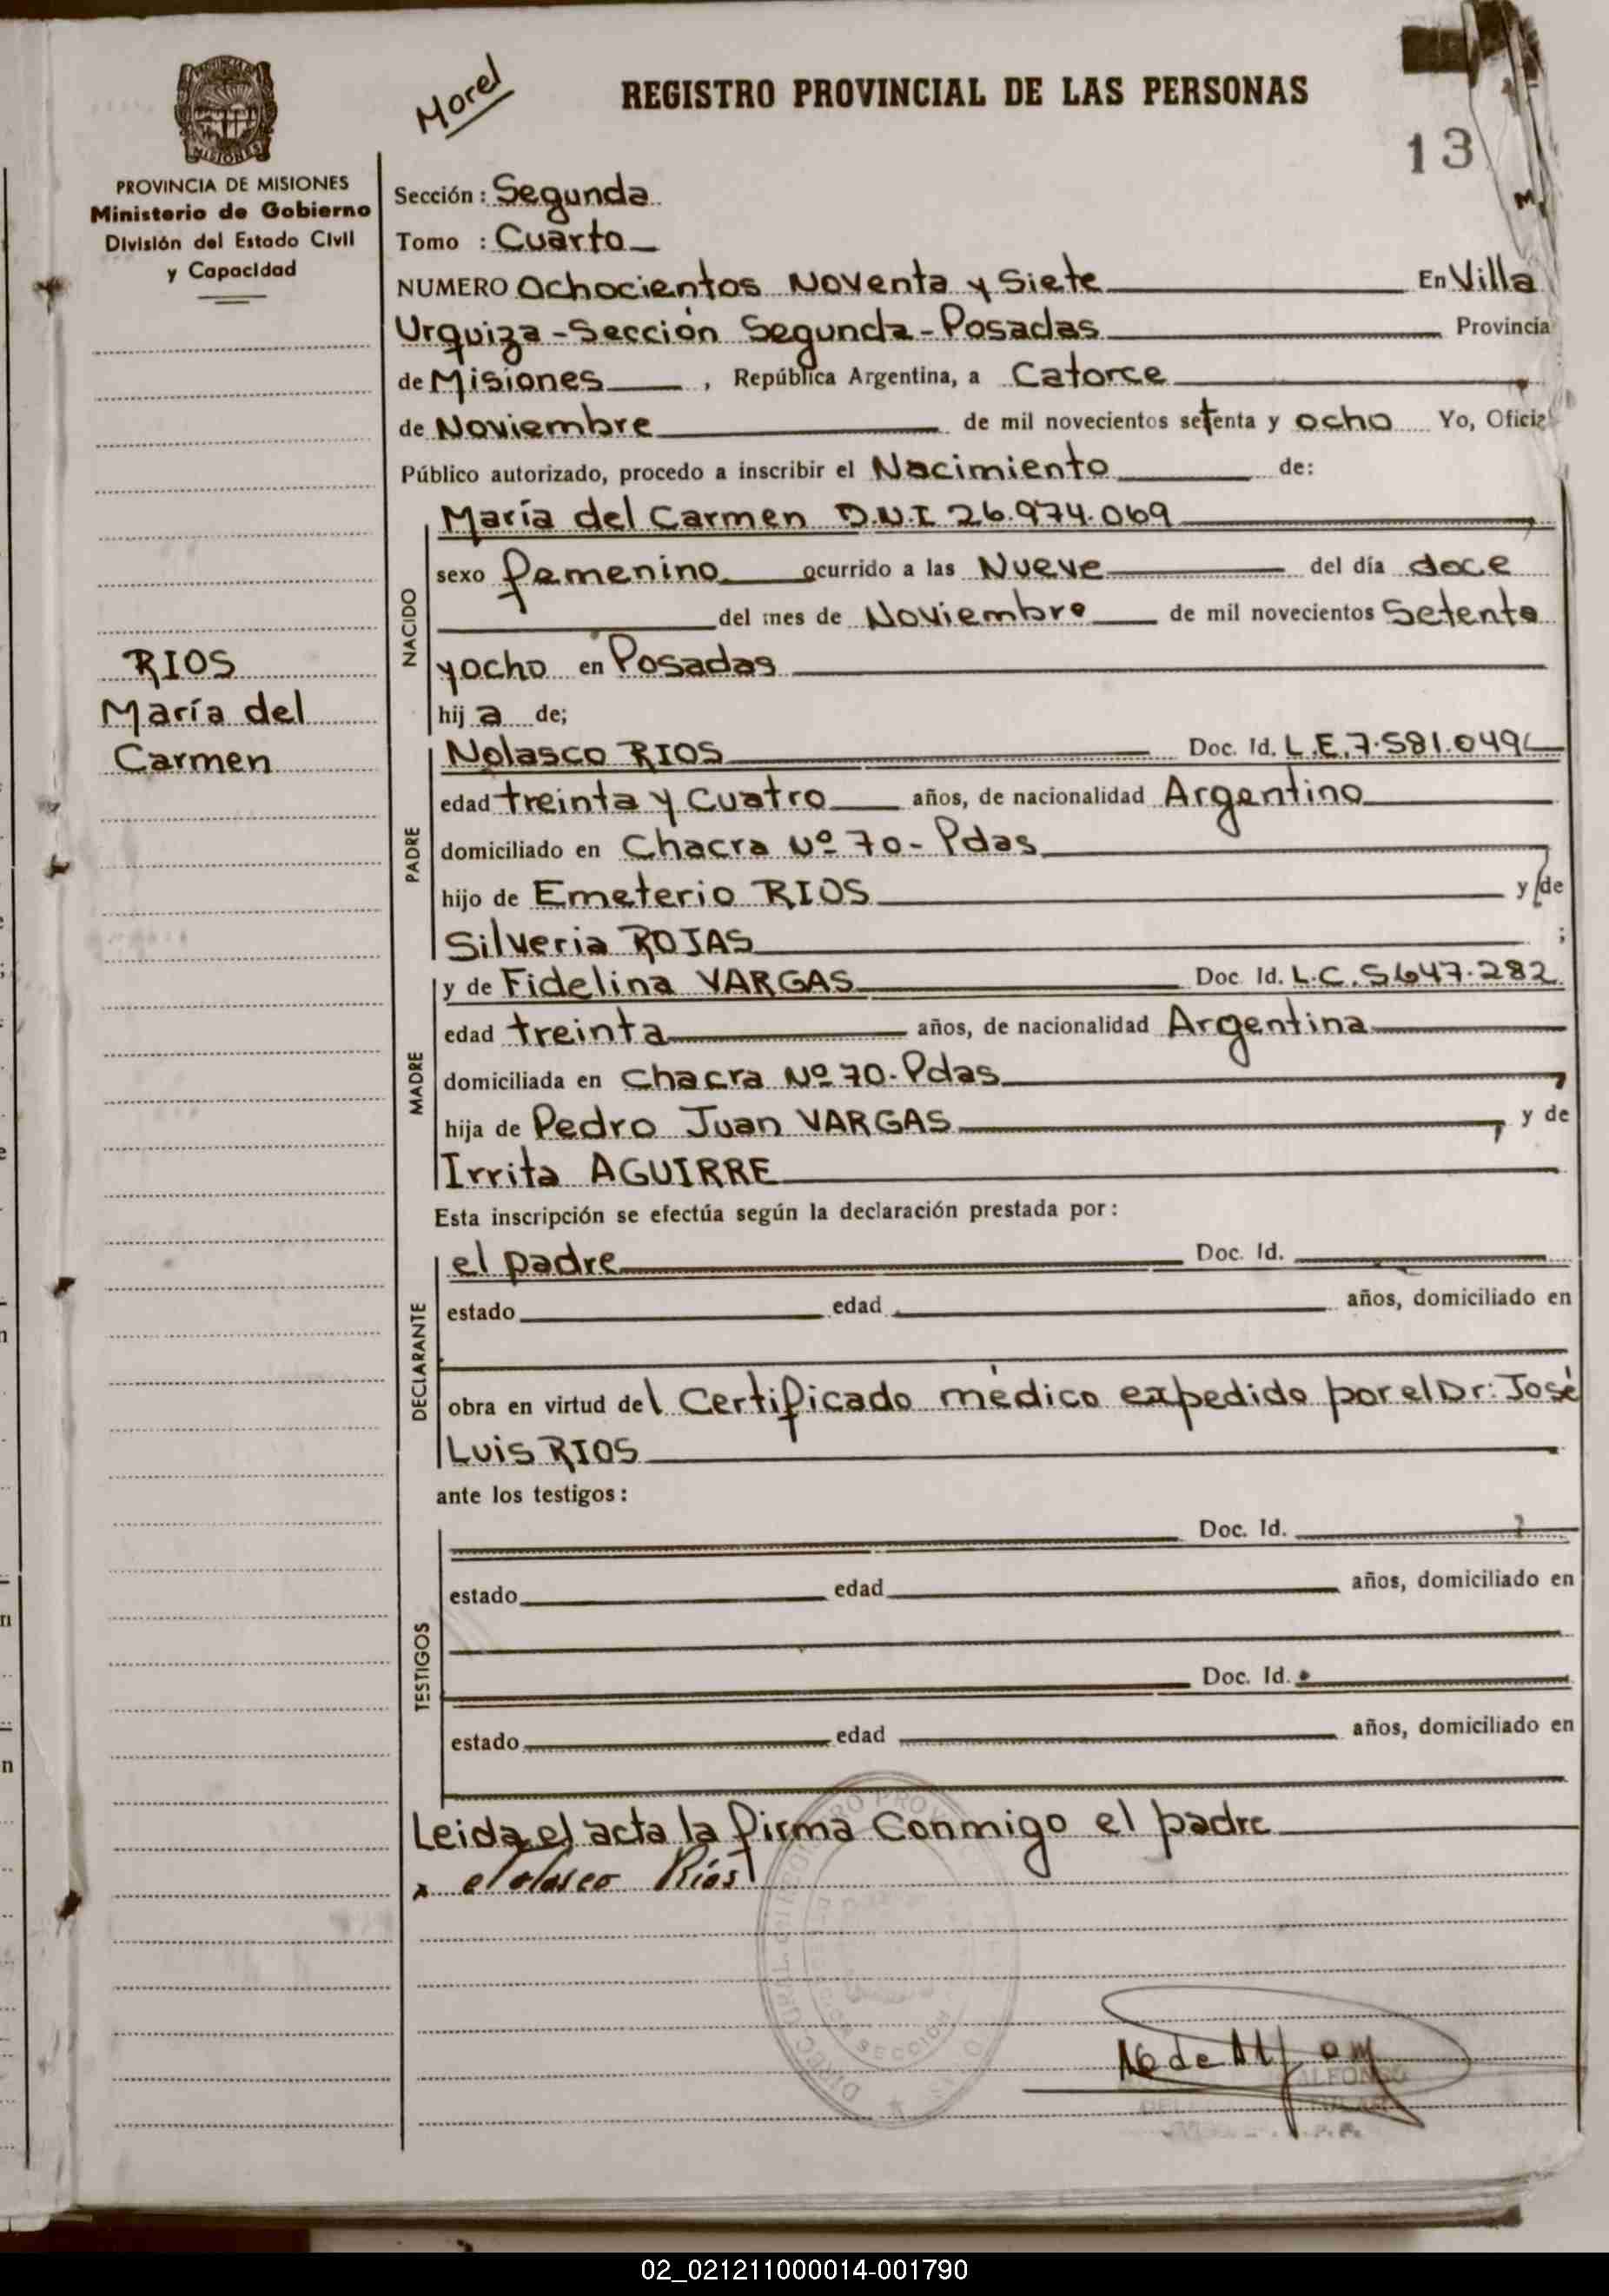 Morel
REGISTRO PROVINCIAL DE LAS PERSONAS
13
MISIONES
PROVINCIA DE MISIONES
Ministerio de Gobierno
División del Estado Civil
y Capacidad
Sección : Segunda
Tomo : Cuarto
NUMERO Ochocientos Noventa y Siete En Villa
Urquiza - Sección Segunda - Posadas Provincia
de Misiones , República Argentina, a Catorce
de Noviembre de mil novecientos setenta y ocho Yo, Oficial
Público autorizado, procedo a inscribir el Nacimiento de:
NACIDO
María del Carmen D.N.I 26.974.069
sexo femenino ocurrido a las Nueve del día doce
del mes de Noviembre de mil novecientos Setenta
y ocho en Posadas
hij a de;
RIOS
María del
Carmen
PADRE
Nolasco RIOS Doc. Id. L.E. 7.581.049
edad treinta y Cuatro años, de nacionalidad Argentino
domiciliado en Chacra Nº 70 - Pdas
hijo de Emeterio RIOS y de
Silveria ROJAS ;
MADRE
y de Fidelina VARGAS Doc. Id. L.C. 5647.282
edad treinta años, de nacionalidad Argentina
domiciliada en Chacra Nº 70. Pdas
hija de Pedro Juan VARGAS y de
Irrita AGUIRRE
Esta inscripción se efectúa según la declaración prestada por :
DECLARANTE
el padre Doc. Id.
estado edad años, domiciliado en
obra en virtud del Certificado médico expedido por el Dr: José
Luis RIOS
ante los testigos :
TESTIGOS
Doc. Id.
estado edad años, domiciliado en
Doc. Id.
estado edad años, domiciliado en
Leida el acta la firma Conmigo el padre
Nolasco Ríos
SECCION
ALFONSO
02_021211000014-001790